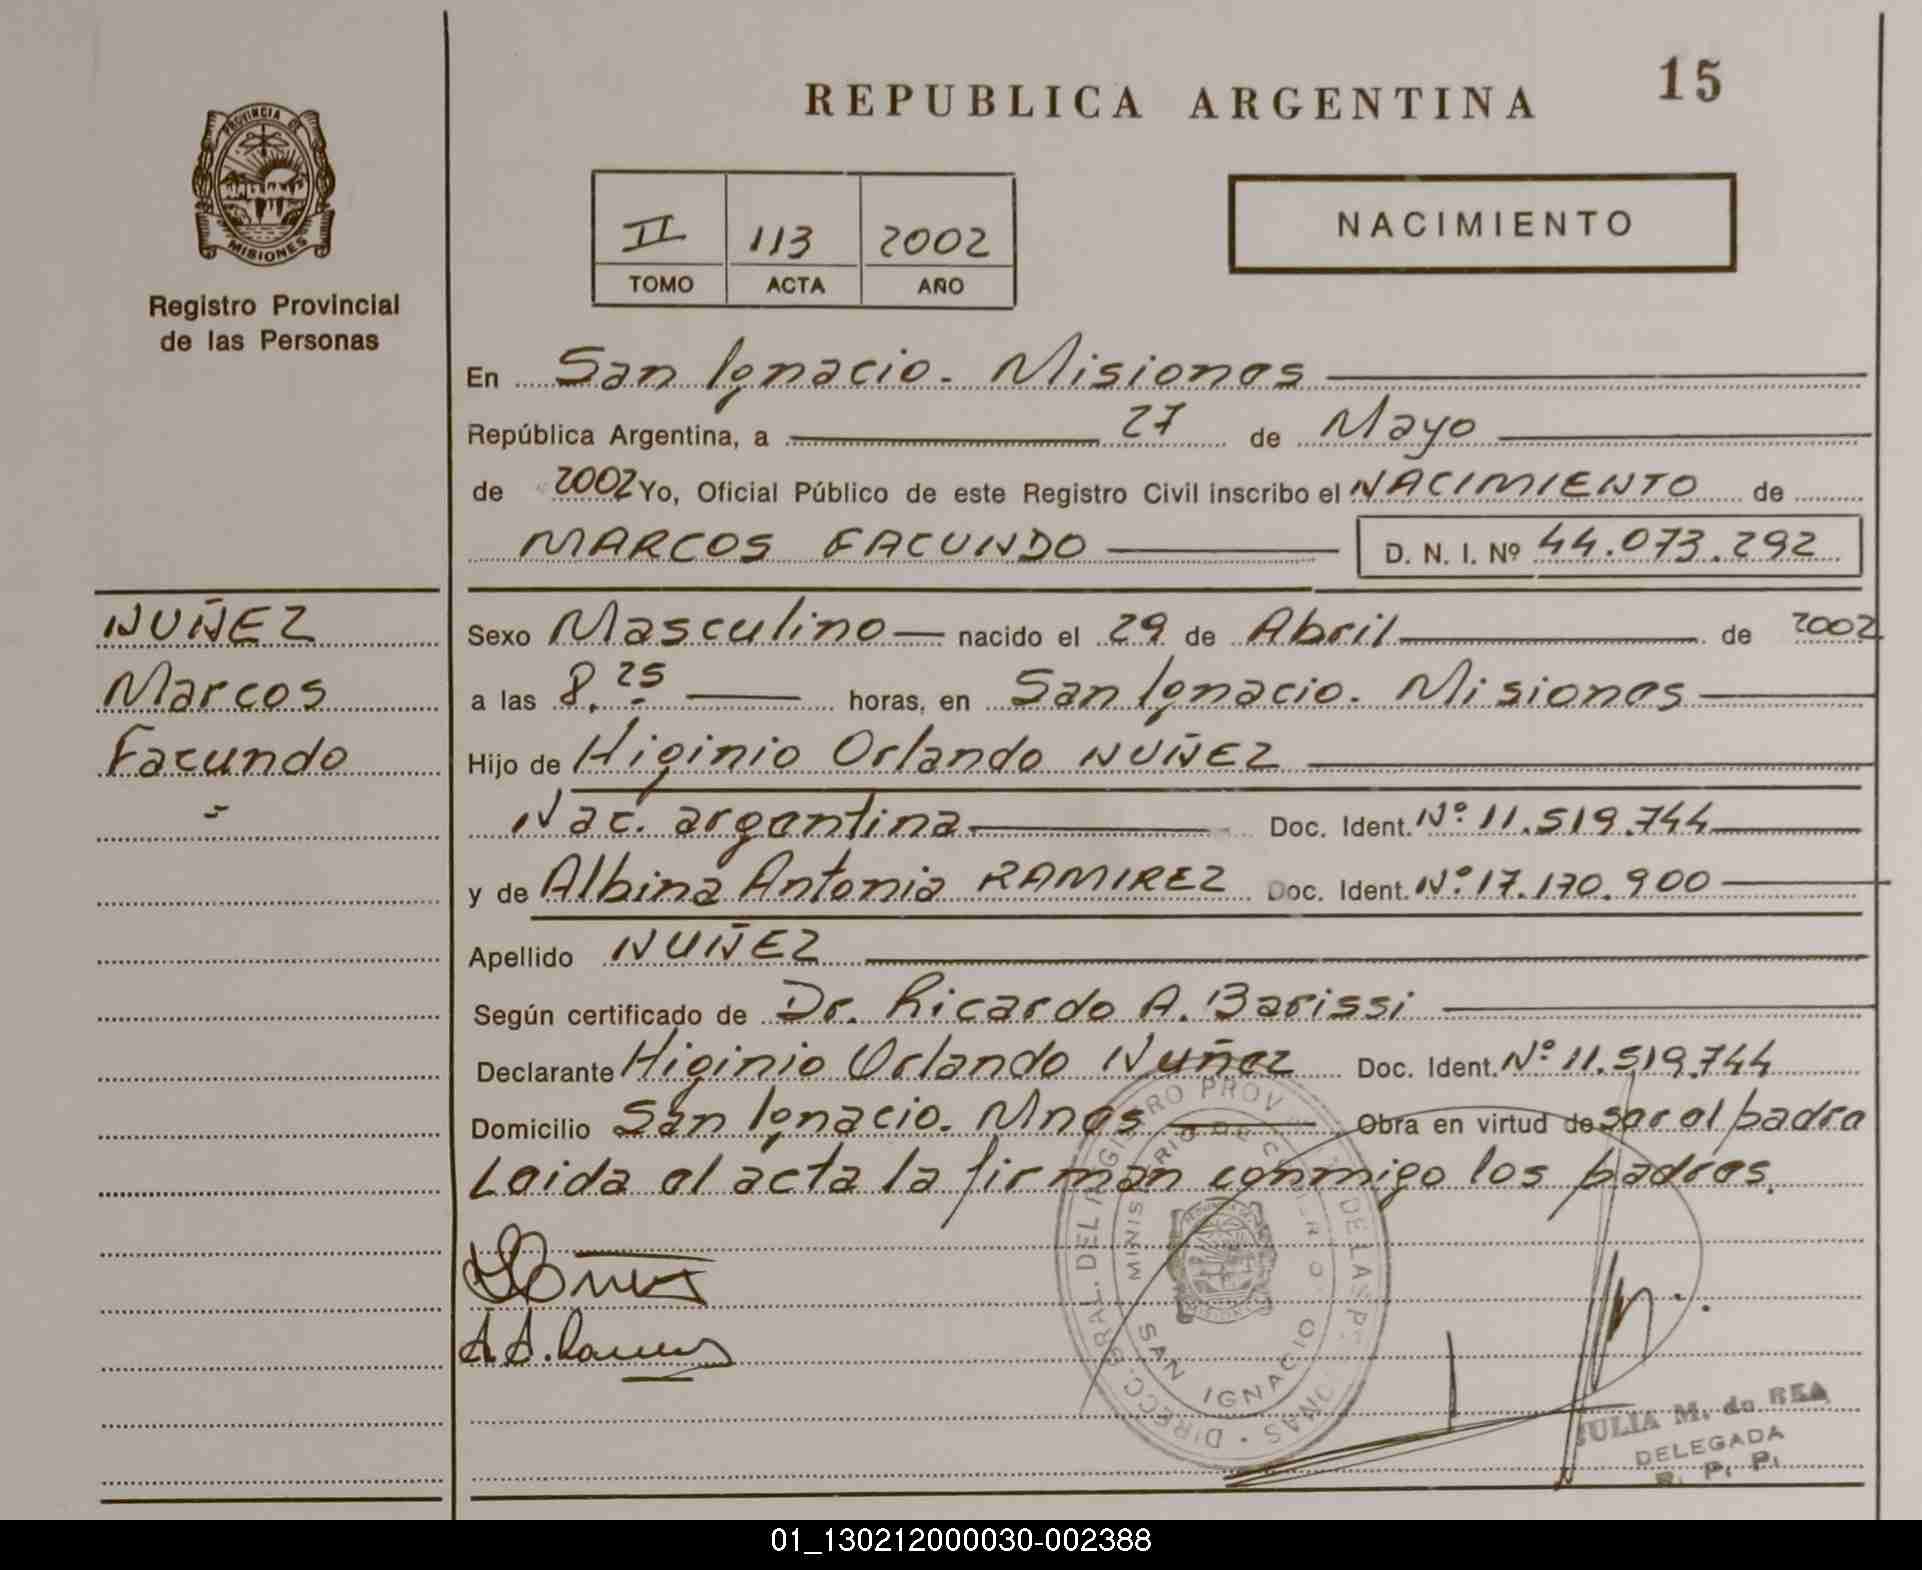 REPUBLICA ARGENTINA
15
PROVINCIA DE
MISIONES
Registro Provincial
de las Personas
II 113 2002
TOMO ACTA AÑO
NACIMIENTO
En San Ignacio. Misiones
República Argentina, a 27 de Mayo
de 2002 Yo, Oficial Público de este Registro Civil inscribo el NACIMIENTO de
MARCOS FACUNDO D. N. I. Nº 44.073.292
NUÑEZ
Marcos
Facundo
Sexo Masculino nacido el 29 de Abril de 2002
a las 8.25 horas, en San Ignacio. Misiones
Hijo de Higinio Orlando NUÑEZ
Nac. argentina Doc. Ident. Nº 11.519.744
y de Albina Antonia RAMIREZ Doc. Ident. Nº 17.170.900
Apellido NUÑEZ
Según certificado de Dr. Ricardo A. Barissi
Declarante Higinio Orlando Nuñez Doc. Ident. Nº 11.519.744
Domicilio San Ignacio. Mnes Obra en virtud de ser el padre
Leida el acta la firman conmigo los padres.
SAN IGNACIO
JULIA M. de REA
DELEGADA
R. P. P.
01_130212000030-002388